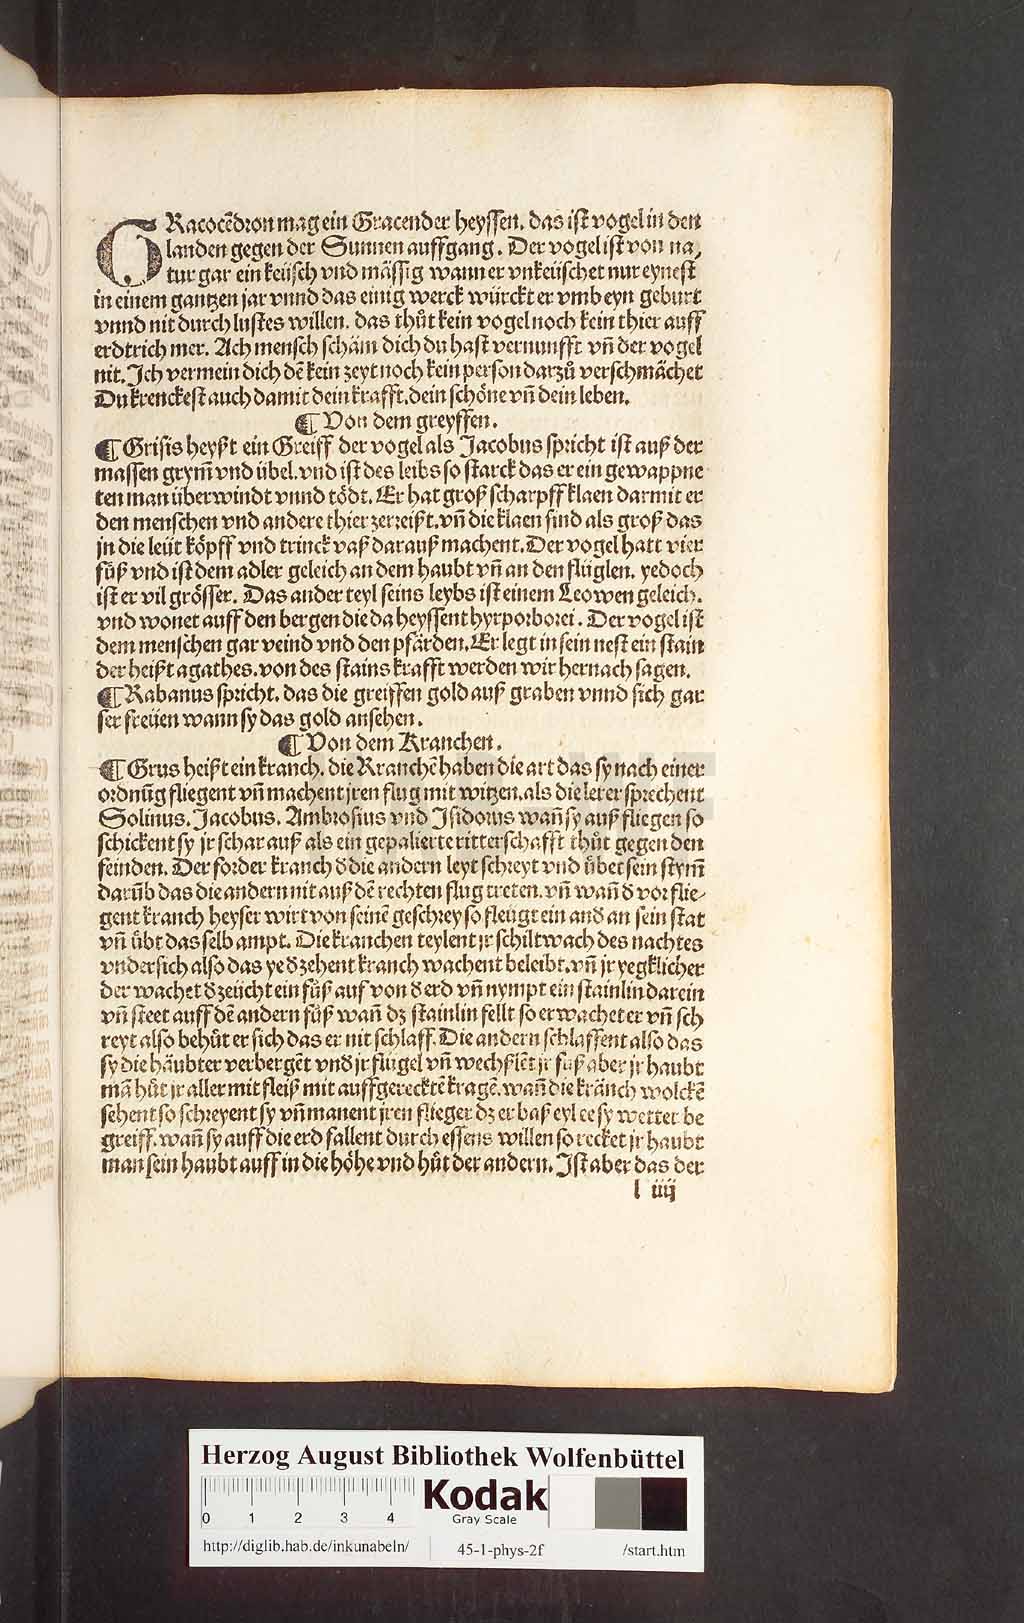 GRacocēdron mag ein Gracender heyssen. das ist vogel in den
landen gegen der Sunnen auffgang. Der vogel ist von na,
tur gar ein keüsch vnd mässig wann er vnkeüschet nur eynest
in einem gantzen jar vnnd das einig werck würckt er vmb eyn geburt
vnnd nit durch lustes willen. das thůt kein vogel noch kein thier auff
erdtrich mer. Ach mensch schäm dich du hast vernunfft vñ der vogel
nit. Ich vermein dich dē kein zeyt noch kein person darzů verschmächet
Du krenckest auch damit dein krafft. dein schöne vñ dein leben.
¶ Von dem greyffen.
¶ Grisis heyßt ein Greiff der vogel als Jacobus spricht ist auß der
massen grym̄ vnd übel. vnd ist des leibs so starck das er ein gewappne
ten man überwindt vnnd tödt. Er hat groß scharpff klaen darmit er
den menschen vnd andere thier zerzeißt. vñ die klaen sind als groß das
jn die leüt köpff vnd trinck vaß darauß machent. Der vogel hatt vier
füß vnd ist dem adler geleich an dem haubt vñ an den flüglen. yedoch
ist er vil grösser. Das ander teyl seins leybs ist einem Leowen geleich.
vnd wonet auff den bergen die da heyssent hyrporborei. Der vogel ist
dem menschen gar veind vnd den pfärden. Er legt in sein nest ein stain
der heißt agathes. von des stains krafft werden wir hernach sagen.
¶ Rabanus spricht. das die greiffen gold auß graben vnnd sich gar
ser freüen wann sy das gold ansehen.
¶ Von dem Kranchen.
¶ Grus heißt ein kranch. die Kranchē haben die art das sy nach einer
ordnūg fliegent vñ machent jren flug mit witzen. als die lerer sprechent
Solinus. Jacobus. Ambrosius vnd Isidorus wañ sy auß fliegen so
schickent sy jr schar auß als ein gepalierte ritterschafft thůt gegen den
feinden. Der forder kranch đ die andern leyt schreyt vnd übet sein stym̄
darūb das die andern nit auß dē rechten flug treten. vñ wañ đ vor flie-
gent kranch heyser wirt von seinē geschrey so fleügt ein anđ an sein stat
vñ übt das selb ampt. Die kranchen teylent jr schiltwach des nachtes
vnder sich also das ye đ zehent kranch wachent beleibt. vñ jr yegklicher
der wachet đ zeücht ein füß auf von đ erd vñ nympt ein stainlin darein
vñ steet auff dē andern füß wañ dz stainlin fellt so erwachet er vñ sch
reyt also behüt er sich das er nit schlaff. Die andern schlaffent also das
sy die häubter verbergēt vnđ jr flügel vñ wechßlēt jr füß aber jr haubt
mā hůt jr aller mit fleiß mit auffgerecktē kragē. wañ die kränch wolckē
sehent so schreyent sy vñ manent jren flieger dz er baß eyl ee sy wetter be
greiff. wañ sy auff die erd fallent durch essens willen so recket jr haubt
man sein haubt auff in die höhe vnd hůt der andern. Ist aber das der
l iiij
Herzog August Bibliothek Wolfenbüttel
0 1 2 3 4
Kodak
Gray Scale
http://diglib.hab.de/inkunabeln/ 45-1-phys-2f /start.htm